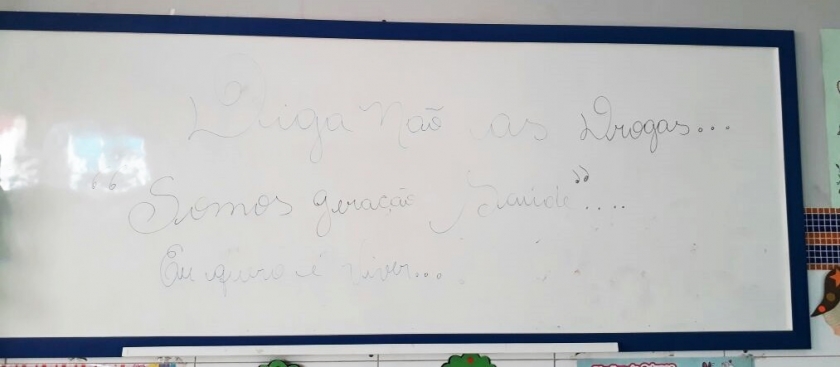 Diga Não as Drogas...
"Somos geração Saúde"....
Eu quero é viver...